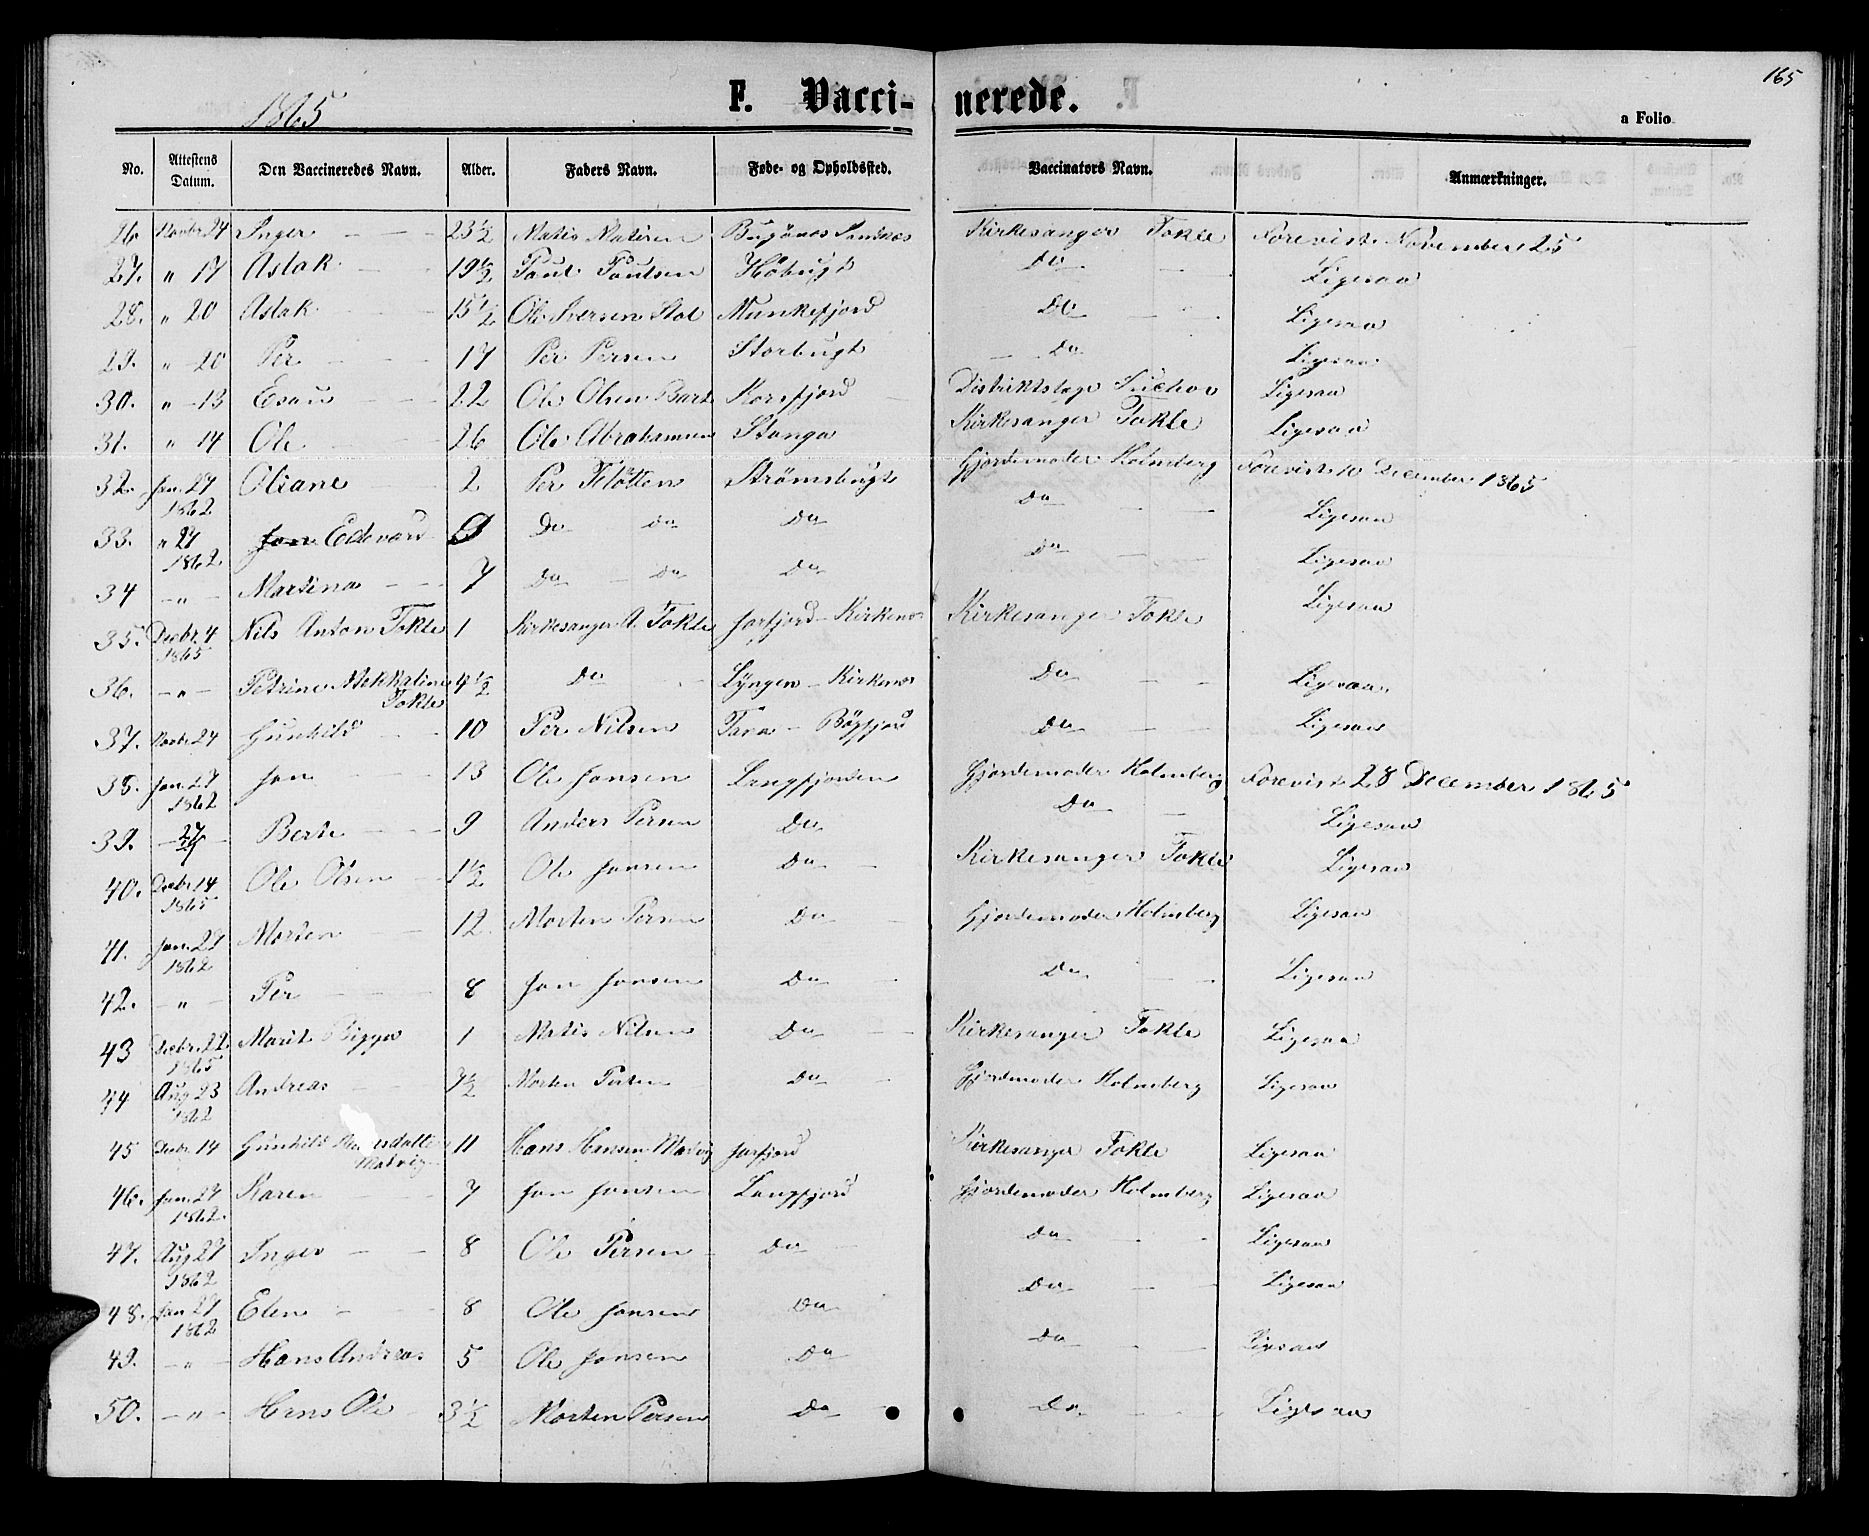 165
1865
F. Vacci- nerede.
a Folio
No. Attestens Datum. Den Vaccineredes Navn. Alder. Faders Navn. Føde- og Opholdssted. Vaccinators Navn. Anmærkninger.
26 Novbr 24 Inger 23 1/2 Matis Matisen Bugønes Kirkesanger Tokle Forevist November 25
27. " 17 Aslak 19 1/2 Poul Poulsen Høbugt Do Ligesaa
28. " 20 Aslak 15 1/2 Ole Iversen Munkefjord Do Ligesaa
29. " 20 Per 17 Per Persen Storbugt Do Ligesaa
30. " 13 Esau 22 Ole Olsen Korsfjord Distriktslæge Ligesaa
31. " 14 Ole 26 Ole Abrahamsen Stanga Kirkesanger Tokle Ligesaa
32. Jan. 27 1862 Oliane 2 Per Strømsbugt Gjordemoder Holmberg Forevist 10 December 1865
33. " 27 1862 Jon Edevard 9 Do Do Do Do Ligesaa
34 - " - Martina 7 Do Do Do Do Ligesaa
35. Decbr. 4 1865 Nils Anton Tokle 1 Kirkesanger A. Tokle Jarfjord - Kirkenes Kirkesanger Tokle Ligesaa
36. - " - Petrine Tokle 4 1/2 Do Lyngen - Kirkenes Do Ligesaa
37. Novbr 24 Gunhild 10 Per Nilsen Tana - Bøgfjord Do Ligesaa
38. Jan. 27 1862 Jon 13 Ole Jonsen Langfjorden Gjordemoder Holmberg Forevist 28 December 1865
39. 27 Berit 9 Anders Persen Do Do Ligesaa
40. Decbr. 14 1865 Ole Olsen 1 1/2 Ole Jonsen Do Kirkesanger Tokle Ligesaa
41. Jan. 27 1862 Morten 12 Morten Persen Do Gjordemoder Holmberg Ligesaa
42. - " - Per 8 Jon Jonsen Do Do Ligesaa
43 Decbr. 22 1865 Marit Bigga 1 Matis Nilsen Do Kirkesanger Tokle Ligesaa
44 Aug 23 1862 Andreas Morten Do Gjordemoder Holmberg Ligesaa
45 Decbr. 14 Gunhild 11 Hans Hansen Jarfjord Kirkesanger Tokle Ligesaa
46. Jan. 27 1862 Karen 7 Jon Jonsen Langfjord Gjordemoder Holmberg Ligesaa
47. Aug 27 1862 Inger 8 Ole Persen Do Do Ligesaa
48. Jan 27 1862 Elen 8 Ole Jonsen Do Do Ligesaa
49. - " - Hans Andreas 5 Ole Jonsen Do Do Ligesaa
50. - " - Hans Ole 3 1/2 Morten Persen Do Do Ligesaa